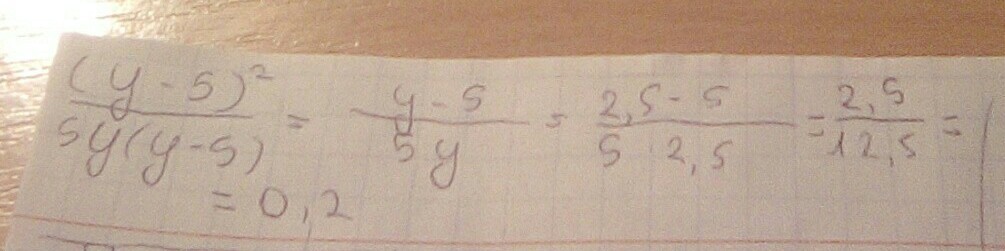 (y - 5)² / 5y(y - 5) = y - 5 / 5y = 2,5 - 5 / 5 · 2,5 = 2,5 / 12,5 =
= 0,2